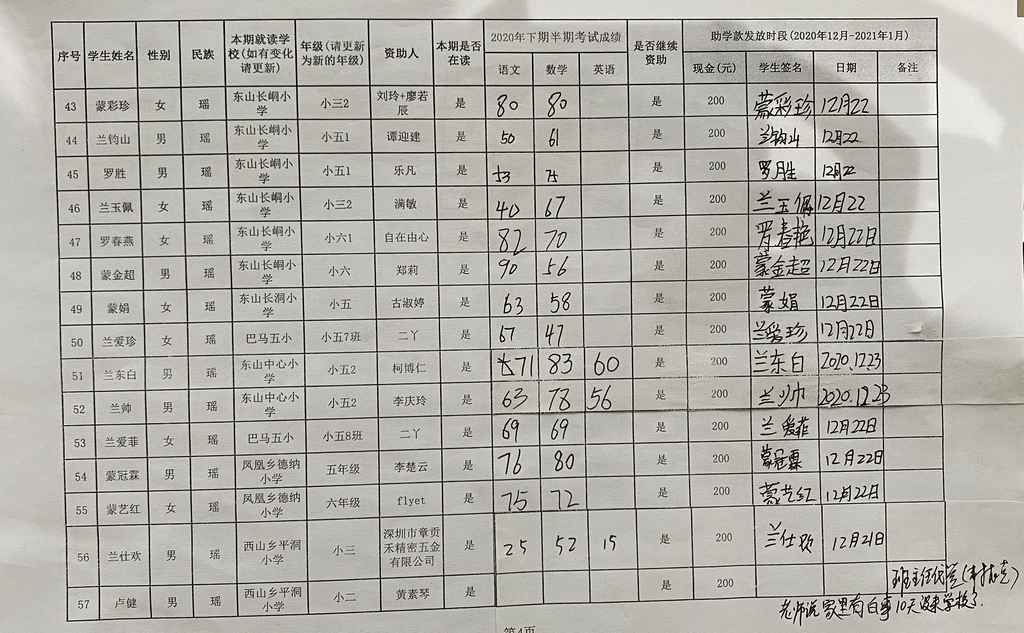 序号 学生姓名 性别 民族 本期就读学校(如有变化请更新) 年级(请更新为新的年级) 资助人 本期是否在读 2020年下期半期考试成绩 是否继续资助 助学款发放时段(2020年12月-2021年1月)
语文 数学 英语 现金(元) 学生签名 日期 备注
43 蒙彩珍 女 瑶 东山长峒小学 小三2 刘玲+廖若辰 是 80 80 是 200 蒙彩珍 12月22
44 兰钧山 男 瑶 东山长峒小学 小五1 谭迎建 是 50 61 是 200 兰钧山 12月22
45 罗胜 男 瑶 东山长峒小学 小五1 乐凡 是 53 75 是 200 罗胜 12月22
46 兰玉佩 女 瑶 东山长峒小学 小三2 满敏 是 40 67 是 200 兰玉佩 12月22
47 罗春燕 女 瑶 东山长峒小学 小六1 自在由心 是 82 70 是 200 罗春艳 12月22日
48 蒙金超 男 瑶 东山长峒小学 小六 郑莉 是 90 56 是 200 蒙金超 12月22日
49 蒙娟 女 瑶 东山长洞小学 小五 古淑婷 是 63 58 是 200 蒙娟 12月22日
50 兰爱珍 女 瑶 巴马五小 小五7班 二丫 是 67 47 是 200 兰爱珍 12月22日
51 兰东白 男 瑶 东山中心小学 小五2 柯博仁 是 71 83 60 是 200 兰东白 2020.12.23
52 兰帅 男 瑶 东山中心小学 小五2 李庆玲 是 63 78 56 是 200 兰帅 2020.12.23
53 兰爱菲 女 瑶 巴马五小 小五8班 二丫 是 69 69 是 200 兰爱菲 12月22日
54 蒙冠霖 男 瑶 凤凰乡德纳小学 五年级 李楚云 是 76 80 是 200 蒙冠霖 12月22日
55 蒙艺红 女 瑶 凤凰乡德纳小学 六年级 flyet 是 75 72 是 200 蒙艺红 12月22日
56 兰仕欢 男 瑶 西山乡平洞小学 小三 深圳市章贡禾精密五金有限公司 是 25 52 15 是 200 兰仕欢 12月21日
57 卢健 男 瑶 西山乡平洞小学 小二 黄素琴 是 是 200
班主任代签
老师说家里有白事10天没来学校了.
第4页